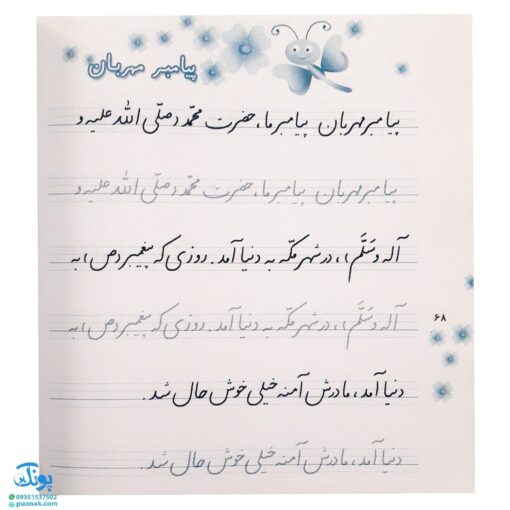 پیامبر مهربان
پیامبر مهربان پیامبر ما، حضرت محمّد (صلّی الله علیه و
پیامبر مهربان پیامبر ما، حضرت محمّد (صلّی الله علیه و
آله وَسَلَّم)، در شهر مکّه به دنیا آمد. روزی که پیغمبر (ص) به
آله وَسَلَّم)، در شهر مکّه به دنیا آمد. روزی که پیغمبر (ص) به
۶۸
دنیا آمد، مادرش آمنه خیلی خوش حال شد.
دنیا آمد، مادرش آمنه خیلی خوش حال شد.
پونک
09351537502
puonak.com